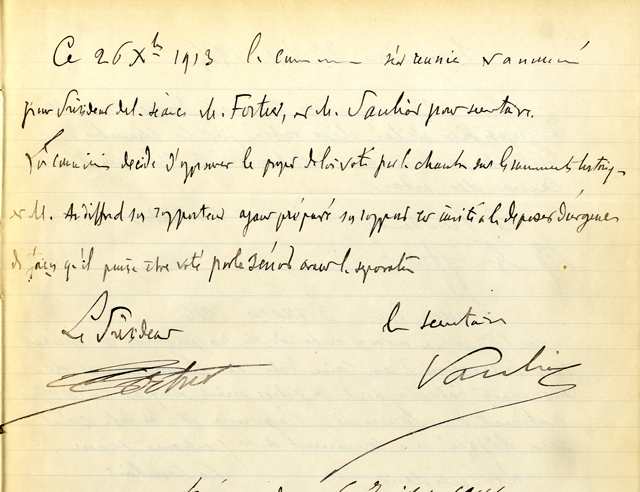 Ce 26 Xbre 1913 la commission s'est réunie et a nommé
pour Président de la séance M. Fortier, et M. Saulier pour secrétaire.
La commission décide d'approuver le projet de loi voté par la chambre sur les monuments historiq-
et M. Audiffred son rapporteur ayant préparé son rapport est invité à le déposer d'urgence
de façon qu'il puisse être voté par le Sénat avant la séparation
Le Président
le secrétaire